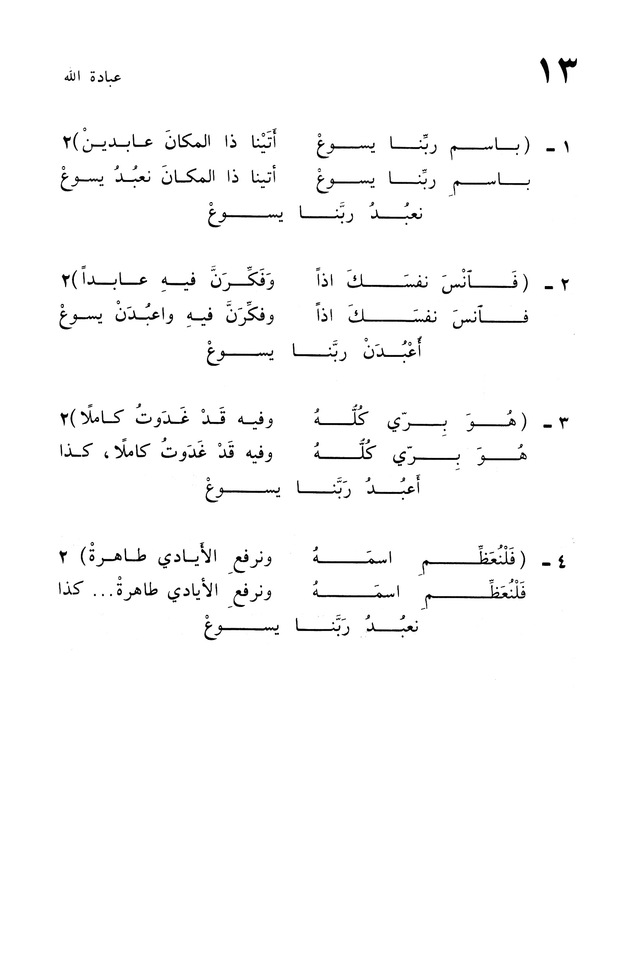 ١٣
عبادة الله
١ - (باسم ربِّنا يسوعْ أَتَيْنا ذا المكانَ عابدينْ)٢
باسمِ ربِّنا يسوعْ أتينا ذا المكانَ نعبُدُ يسوعْ
نعبُدُ ربَّنا يسوعْ
٢ - (فَٱنْسَ نفسَكَ اذاً وَفَكِّرَنَّ فيهِ عابداً)٢
فٱنسَ نفسَكَ اذاً وفكِّرَنَّ فيهِ واعبُدَنْ يسوعْ
أَعْبُدَنْ ربَّنا يسوعْ
٣ - (هُوَ بِرّي كُلُّهُ وفيه قَدْ غَدَوتُ كاملًا)٢
هُوَ بِرّي كُلُّهُ وفيه قَدْ غَدَوتُ كاملًا، كذا
أَعبُدُ رَبَّنا يسوعْ
٤ - (فَلْنُعَظِّمِ اسمَهُ ونرفعِ الأَيادي طاهرةْ) ٢
فَلْنُعَظِّمِ اسمَهُ ونرفعِ الأيادي طاهرةْ... كذا
نعبُدُ رَبَّنا يسوعْ